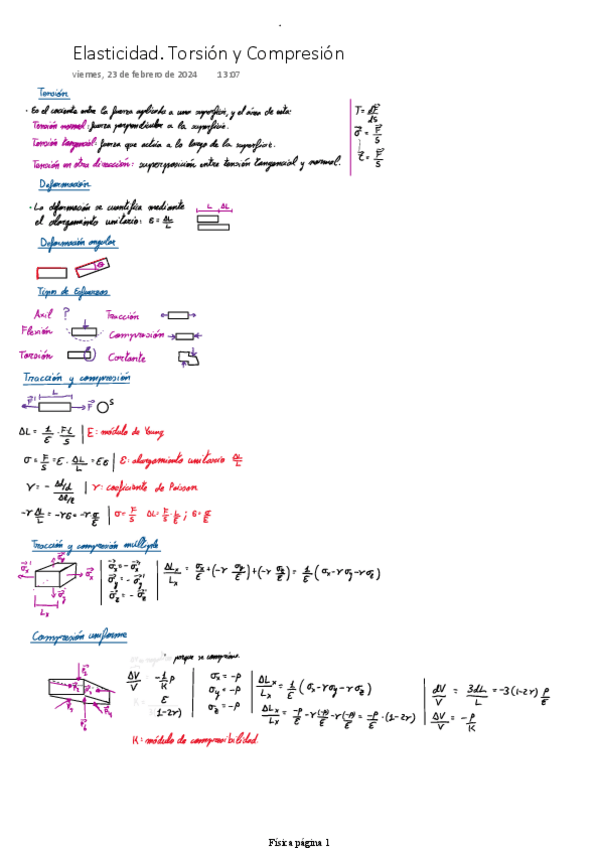 Elasticidad. Torsión y Compresión
viernes, 23 de febrero de 2024 13:07
Tensión
· Es el cociente entre la fuerza aplicada a una superficie, y el área de esta:
Tensión normal: fuerza perpendicular a la superficie.
Tensión tangencial: fuerza que actúa a lo largo de la superficie.
Tensión en otra dirección: superposición entre tensión tangencial y normal.
T = dF/dS
σ = F/S
τ = F/S
Deformación
· La deformación se cuantifica mediante
el alargamiento unitario: ε = ΔL/L
L ΔL
Deformación angular
θ
Tipos de Esfuerzos
Axil ? Tracción
Flexión Compresión
Torsión Cortante
Tracción y compresión
L
F' F S
ΔL = 1/E · FL/S | E: módulo de Young
σ = F/S = E · ΔL/L = Eε | ε: alargamiento unitario ΔL/L
γ = - Δd/d / Δl/l | γ: coeficiente de Poisson
-γ ΔL/L = -γε = -γ σ/E | σ = F/S ΔL = F/S · L/E ; ε = σ/E
Tracción y compresión múltiple
σx = -σx'
σy = -σy'
σz = -σz'
ΔLx/Lx = σx/E + (-γ σy/E) + (-γ σz/E) = 1/E (σx - γσy - γσz)
Lx
Compresión uniforme
porque se comprime.
ΔV/V = -1/K p
E
1-2γ)
σx = -p
σy = -p
σz = -p
ΔLx/Lx = 1/E (σx - γσy - γσz)
ΔLx/Lx = -p/E - γ(-p)/E - γ(-p)/E = -p/E · (1-2γ)
dV/V = 3dL/L = -3(1-2γ) p/E
ΔV/V = -p/K
K = módulo de compresibilidad.
Física página 1